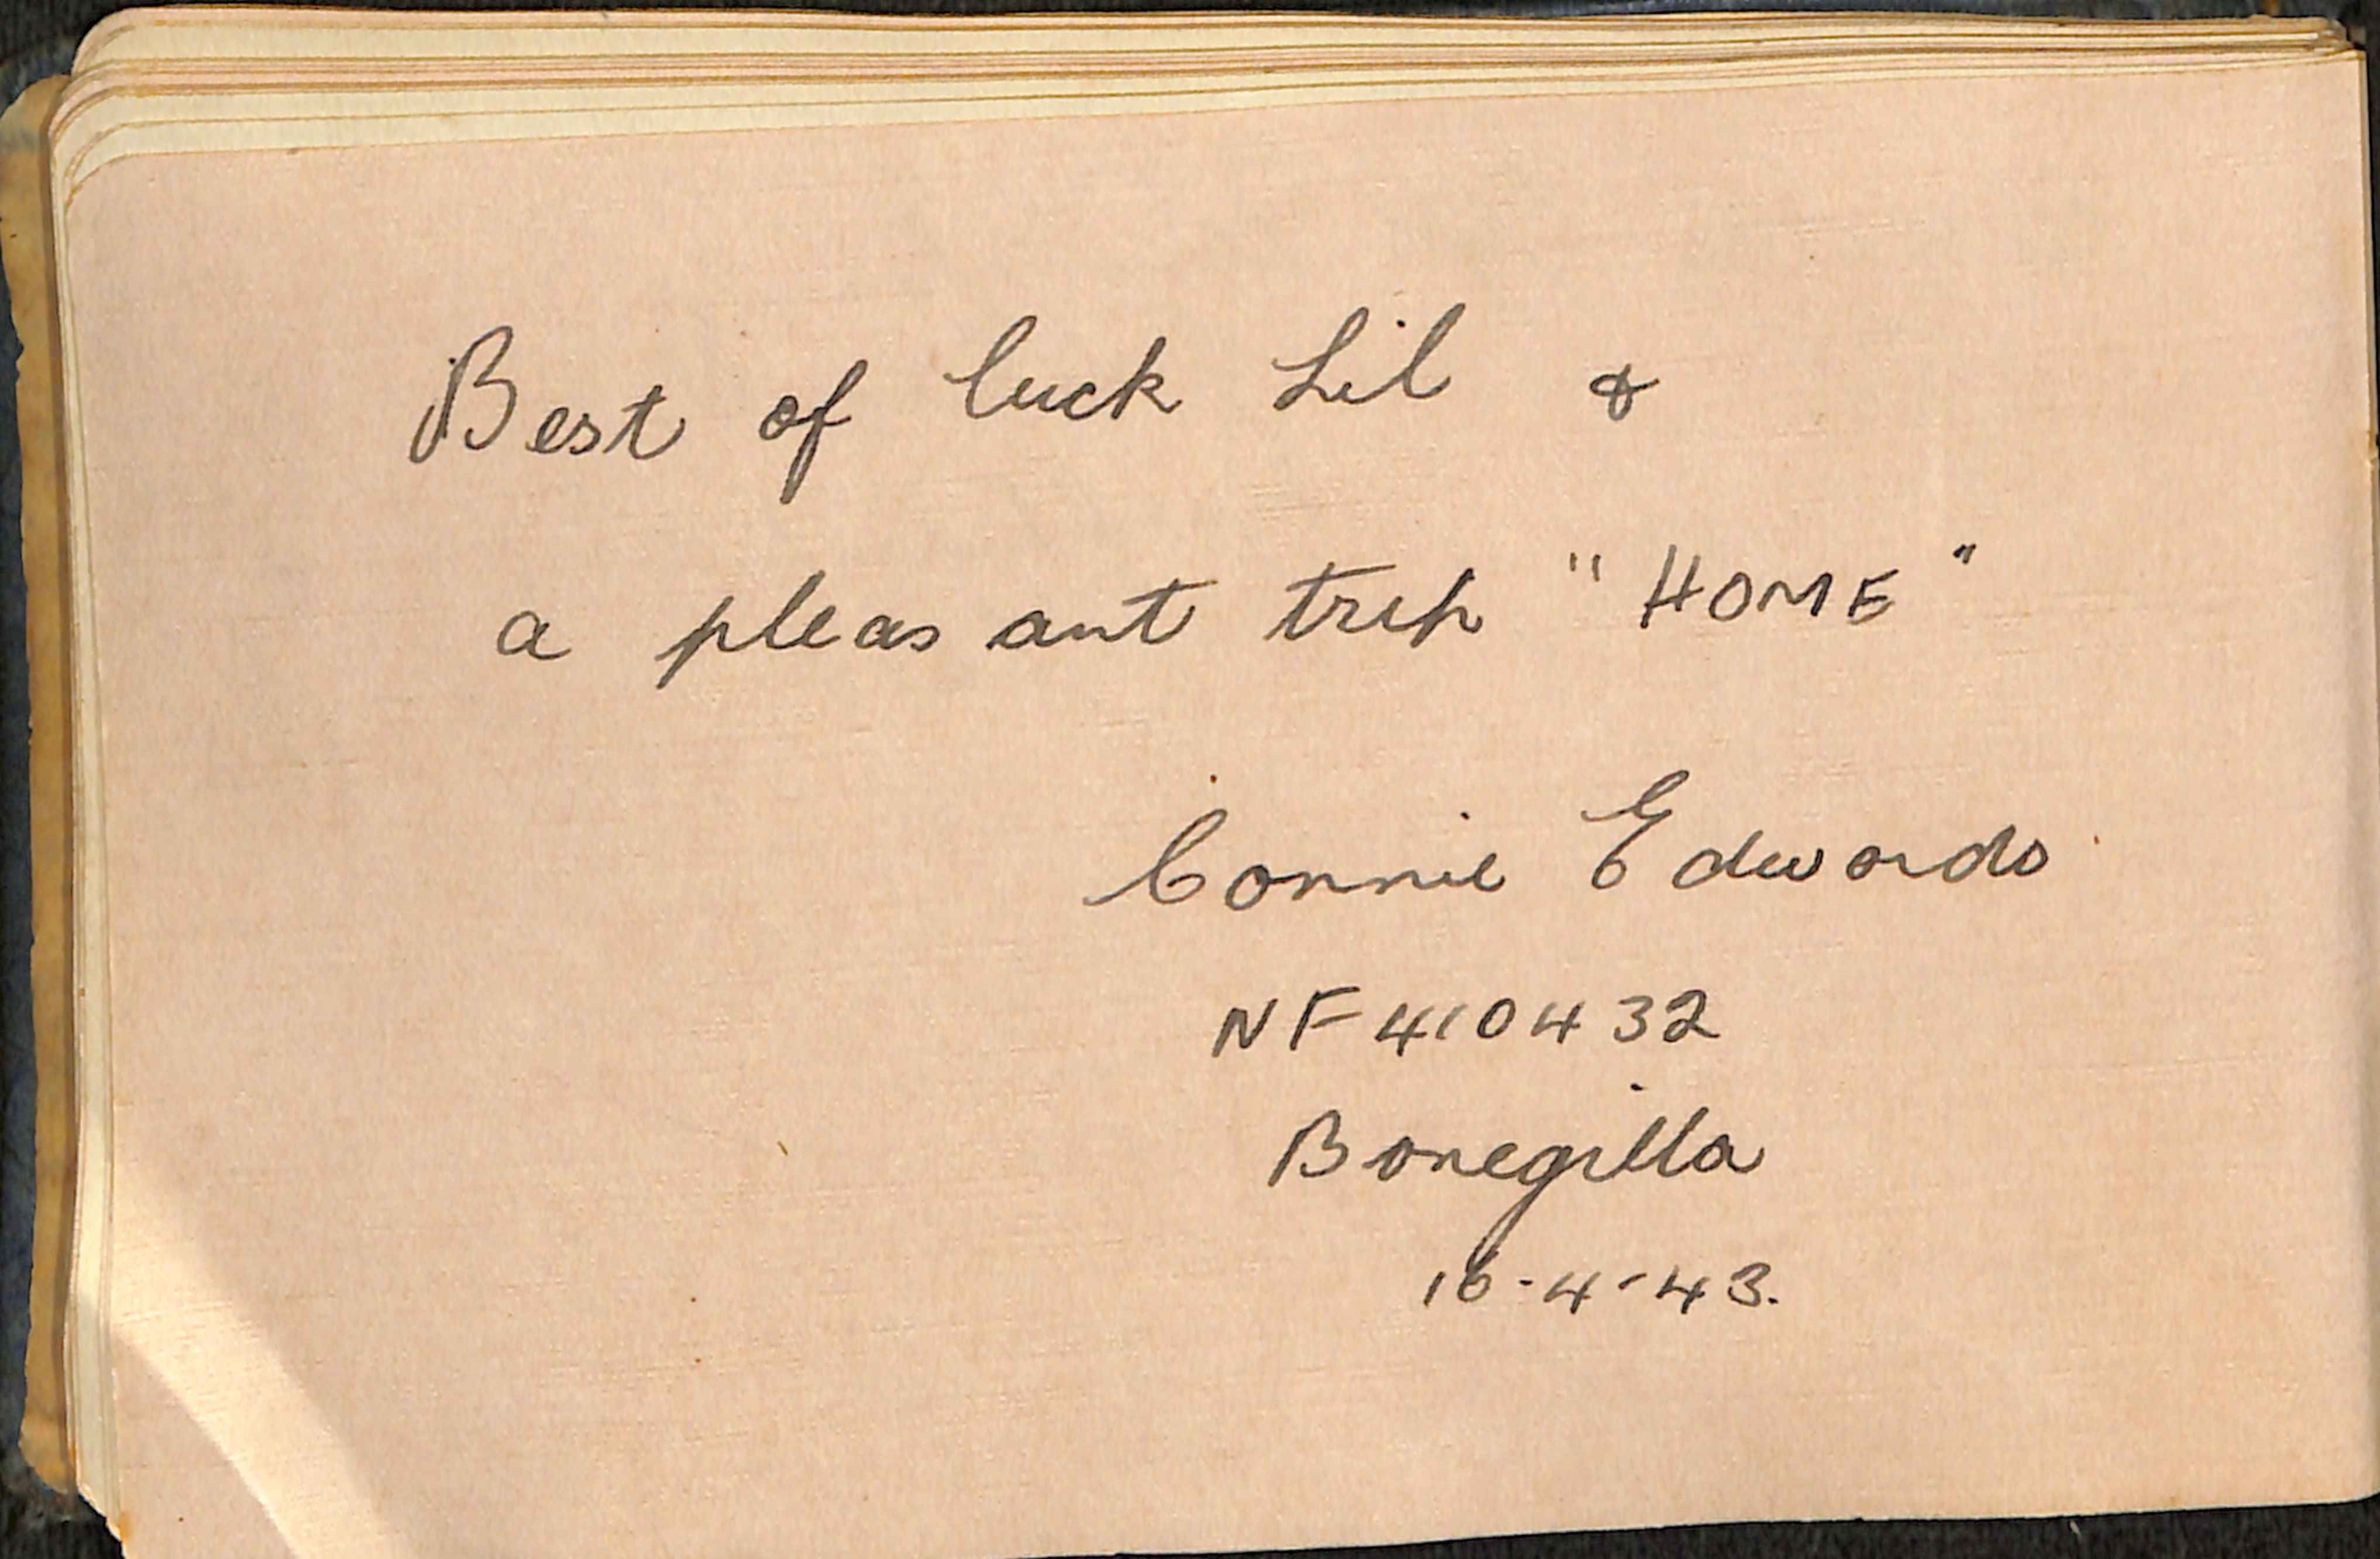 Best of luck Lil &
a pleasant trip "HOME"
Connie Edwards
NF410432
Bonegilla
16-4-43.